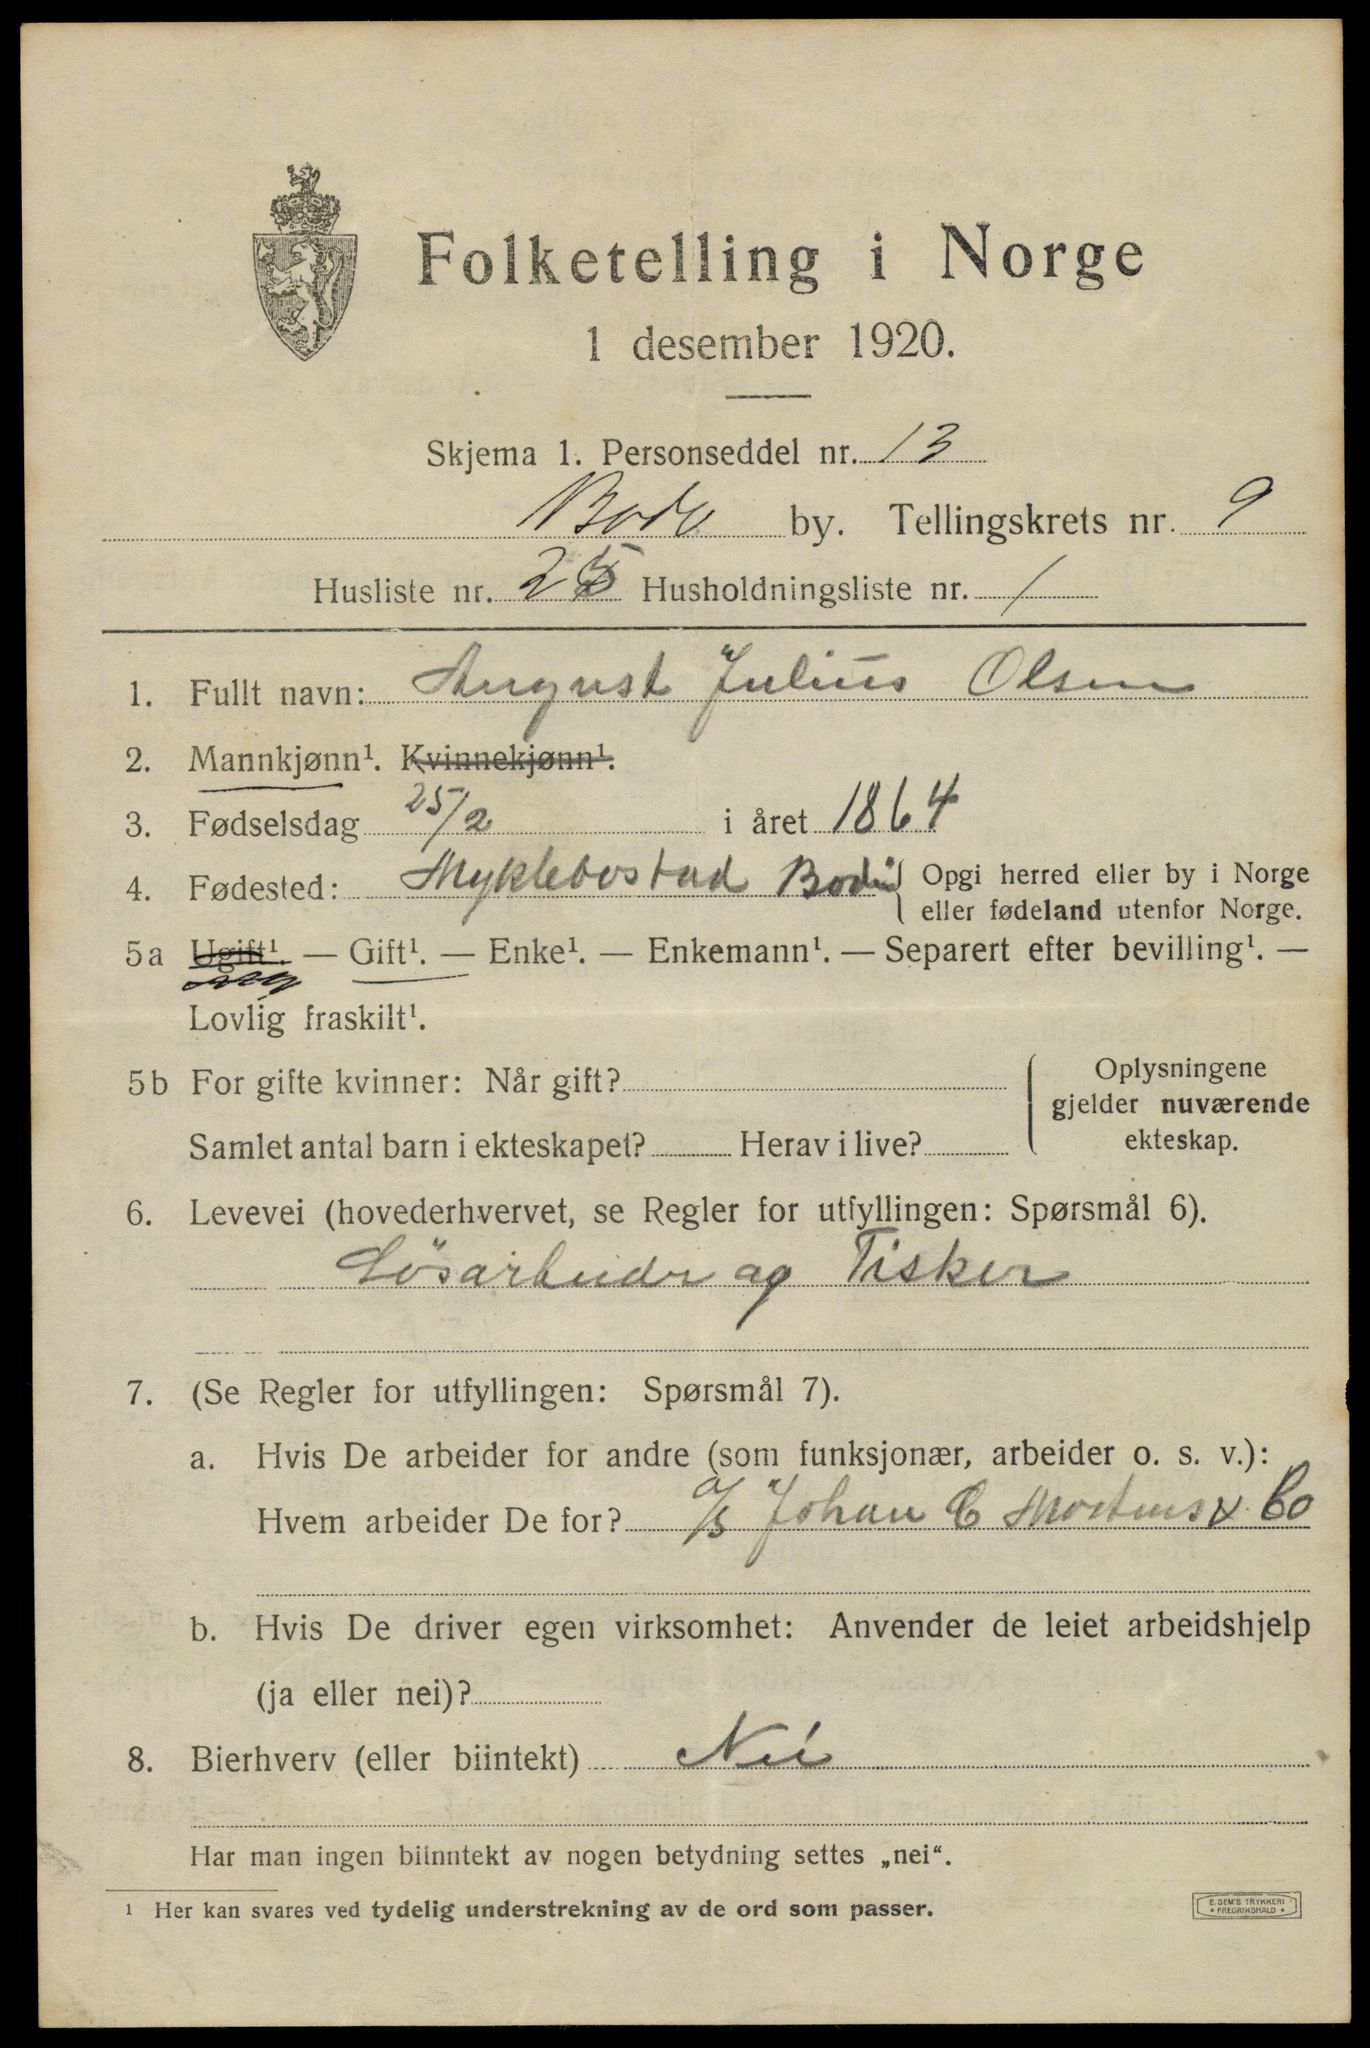 Folketelling i Norge
1 desember 1920.
Skjema 1. Personseddel nr. 13
Bodø by. Tellingskrets nr. 9
Husliste nr. 25 Husholdningsliste nr. 1
1. Fullt navn: August Julius Olsen
2. Mannkjønn¹. Kvinnekjønn¹.
3. Fødselsdag 25/2 i året 1864
4. Fødested: Myklebostad Bodin { Opgi herred eller by i Norge
eller fødeland utenfor Norge.
5a Ugift¹. — Gift¹. — Enke¹. — Enkemann¹. — Separert efter bevilling¹. —
Lovlig fraskilt¹.
5b For gifte kvinner: Når gift?
Samlet antal barn i ekteskapet? Herav i live?
Oplysningene
gjelder nuværende
ekteskap.
6. Levevei (hovederhvervet, se Regler for utfyllingen: Spørsmål 6).
Løsarbeider og Fisker
7. (Se Regler for utfyllingen: Spørsmål 7).
a. Hvis De arbeider for andre (som funksjonær, arbeider o. s. v.):
Hvem arbeider De for? a/s Johan C Mortens & Co
b. Hvis De driver egen virksomhet: Anvender de leiet arbeidshjelp
(ja eller nei)?
8. Bierhverv (eller biintekt) Nei
Har man ingen biinntekt av nogen betydning settes „nei“.
¹ Her kan svares ved tydelig understrekning av de ord som passer.
E. SEM'S TRYKKERI
• FREDRIKSHALD •